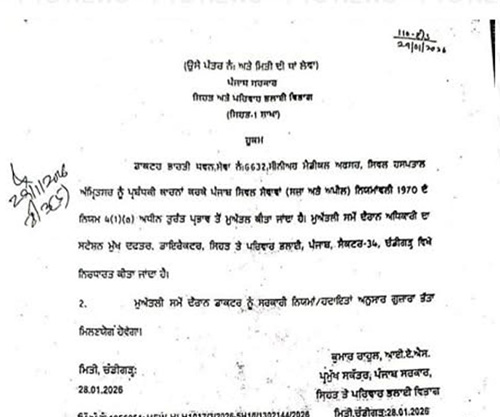 110-ਈ/3
29/01/2026
(ਉਸੇ ਪੱਤਰ ਨੰ: ਅਤੇ ਮਿਤੀ ਦੀ ਥਾਂ ਲੇਵਾ)
ਪੰਜਾਬ ਸਰਕਾਰ
ਸਿਹਤ ਅਤੇ ਪਰਿਵਾਰ ਭਲਾਈ ਵਿਭਾਗ
(ਸਿਹਤ-1 ਸ਼ਾਖਾ)
ਹੁਕਮ
ਡਾਕਟਰ ਭਾਰਤੀ ਧਵਨ,ਸੇਵਾ ਨੰ:6632,ਸੀਨੀਅਰ ਮੈਡੀਕਲ ਅਫਸਰ, ਸਿਵਲ ਹਸਪਤਾਲ
ਅੰਮ੍ਰਿਤਸਰ ਨੂੰ ਪ੍ਰਬੰਧਕੀ ਕਾਰਨਾਂ ਕਰਕੇ ਪੰਜਾਬ ਸਿਵਲ ਸੇਵਾਵਾਂ (ਸਜ਼ਾ ਅਤੇ ਅਪੀਲ) ਨਿਯਮਾਂਵਲੀ 1970 ਦੇ
ਨਿਯਮ 4(1)(a) ਅਧੀਨ ਤੁਰੰਤ ਪ੍ਰਭਾਵ ਤੋਂ ਮੁਅੱਤਲ ਕੀਤਾ ਜਾਂਦਾ ਹੈ। ਮੁਅੱਤਲੀ ਸਮੇਂ ਦੌਰਾਨ ਅਧਿਕਾਰੀ ਦਾ
ਸਟੇਸ਼ਨ ਮੁੱਖ ਦਫਤਰ, ਡਾਇਰੈਕਟਰ, ਸਿਹਤ ਤੇ ਪਰਿਵਾਰ ਭਲਾਈ, ਪੰਜਾਬ, ਸੈਕਟਰ-34, ਚੰਡੀਗੜ੍ਹ ਵਿਖੇ
ਨਿਰਧਾਰਤ ਕੀਤਾ ਜਾਂਦਾ ਹੈ।
29/1/2026
2. ਮੁਅੱਤਲੀ ਸਮੇਂ ਦੌਰਾਨ ਡਾਕਟਰ ਨੂੰ ਸਰਕਾਰੀ ਨਿਯਮਾਂ/ਹਦਾਇਤਾਂ ਅਨੁਸਾਰ ਗੁਜ਼ਾਰਾ ਭੱਤਾ
ਮਿਲਣਯੋਗ ਹੋਵੇਗਾ।
ਕੁਮਾਰ ਰਾਹੁਲ, ਆਈ.ਏ.ਐਸ.
ਮਿਤੀ, ਚੰਡੀਗੜ੍ਹ: ਪ੍ਰਮੁੱਖ ਸਕੱਤਰ, ਪੰਜਾਬ ਸਰਕਾਰ,
28.01.2026 ਸਿਹਤ ਤੇ ਪਰਿਵਾਰ ਭਲਾਈ ਵਿਭਾਗ
ਮਿਤੀ,ਚੰਡੀਗੜ੍ਹ:28.01.2026